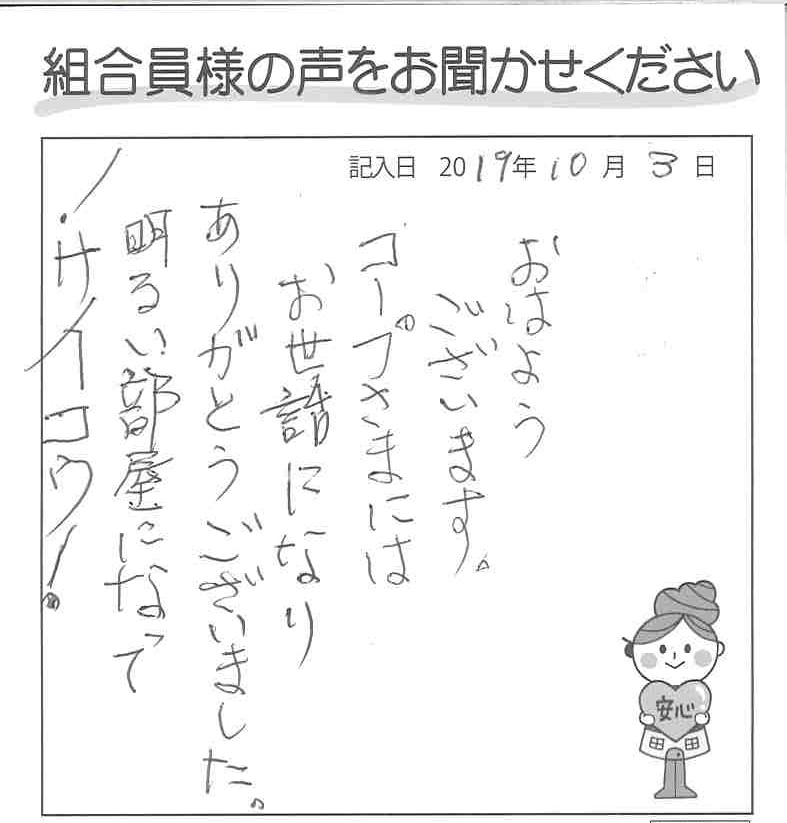 組合員様の声をお聞かせください
記入日 2019年 10月 3日
おはよう
ございます。
コープさまには
お世話になり
ありがとうございました。
明るい部屋になって
！サイコウ！
安心